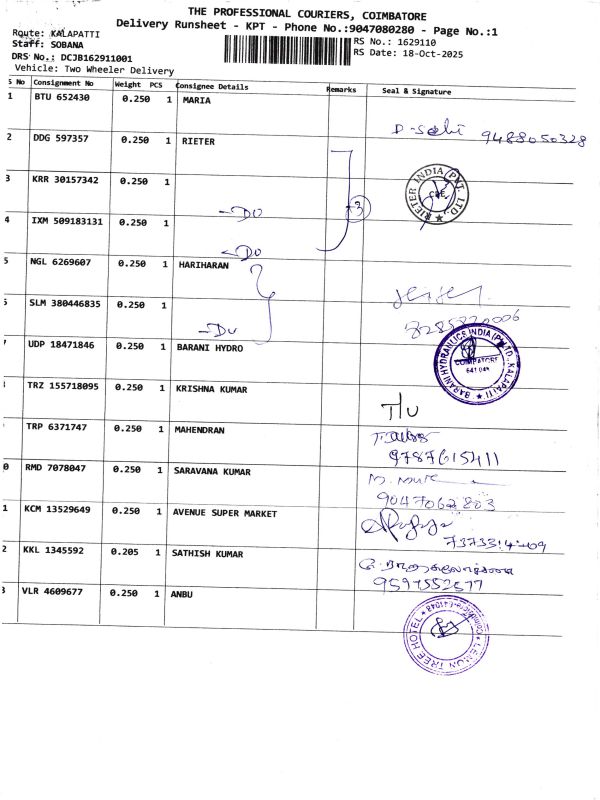 THE PROFESSIONAL COURIERS, COIMBATORE
Delivery Runsheet - KPT - Phone No.:9047080280 - Page No.:1
Route: KALAPATTI
Staff: SOBANA
DRS No.: DCJB162911001
Vehicle: Two Wheeler Delivery
RS No.: 1629110
RS Date: 18-Oct-2025
S No Consignment No Weight PCS Consignee Details Remarks Seal & Signature
1 BTU 652430 0.250 1 MARIA
9488050328
2 DDG 597357 0.250 1 RIETER
3 KRR 30157342 0.250 1
-Do
3
RIETER INDIA (PVT. LTD.,
4 IXM 509183131 0.250 1
-Do
5 NGL 6269607 0.250 1 HARIHARAN
SLM 380446835 0.250 1
-Do
8285820006
UDP 18471846 0.250 1 BARANI HYDRO
BARANI HYDRAULICS INDIA (P) LTD., KALAPATTI
COIMBATORE
641 048
TRZ 155718095 0.250 1 KRISHNA KUMAR
TRP 6371747 0.250 1 MAHENDRAN
9787615411
0 RMD 7078047 0.250 1 SARAVANA KUMAR
9047062803
1 KCM 13529649 0.250 1 AVENUE SUPER MARKET
2 KKL 1345592 0.205 1 SATHISH KUMAR
9597552677
3 VLR 4609677 0.250 1 ANBU
LEMON TREE HOTEL
Coimbatore-641048